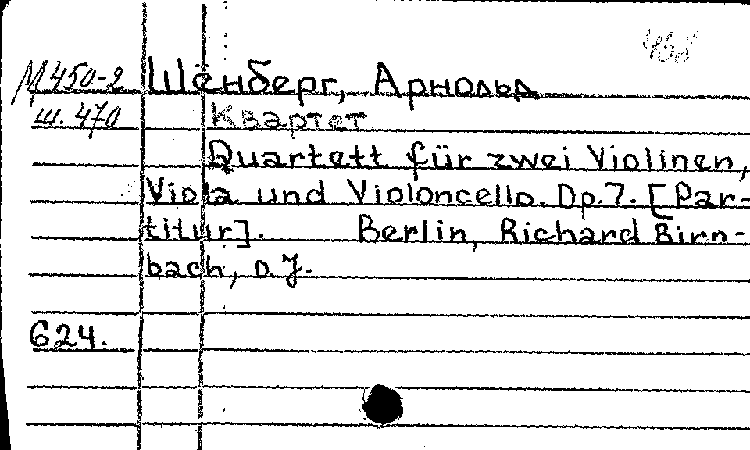 М450-2 Шёнберг, Арнольд
ш.470 Квартет
Quartett für zwei Violinen,
Viola und Violoncello. Op.7. [Par-
titur]. Berlin, Richard Birn-
bach, o.J.
624.